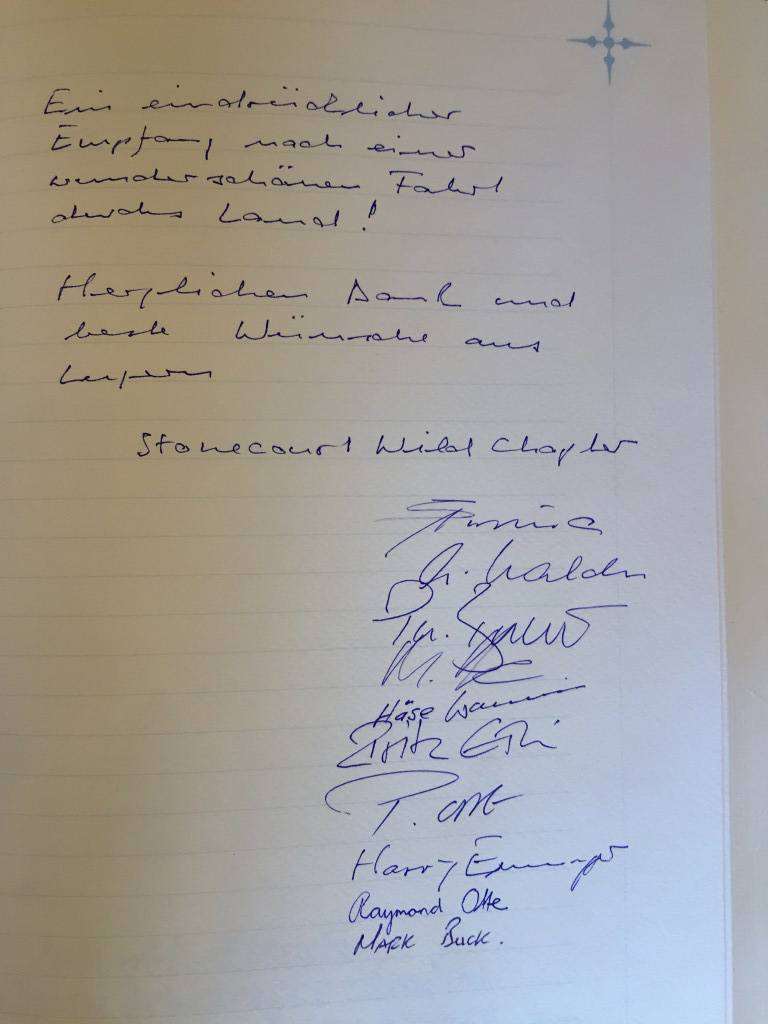 Ein eindrücklicher
Empfang nach einer
wunderschönen Fahrt
durchs Land!
Herzlichen Dank und
beste Wünsche aus
Luzern
Stonecourt Wild Chapter
Häse
Fritz
P. Otte
Harry
Raymond Otte
MARK BUCK.